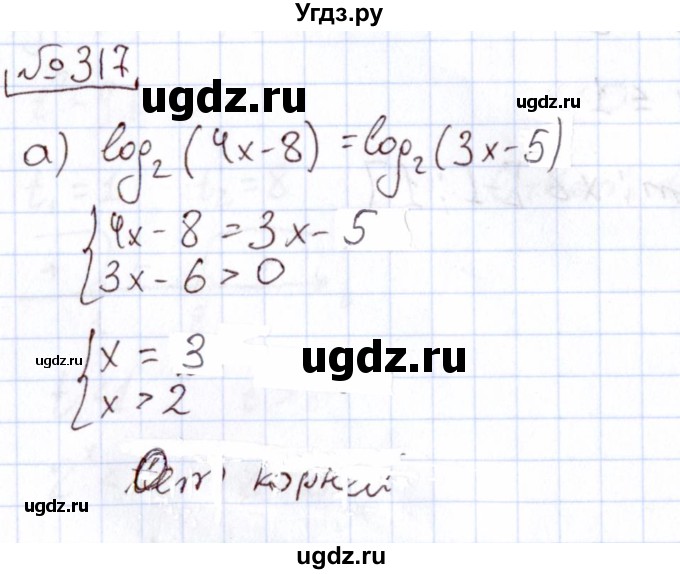 Угдз.ру
№317
ugdz.ru
ugdz.ru
а) log₂(4x-8) = log₂(3x-5)
{4x-8 = 3x-5
{3x-6 > 0
ugdz.ru
ugdz.ru
{x = 3
{x > 2
ugdz.ru
ugdz.ru